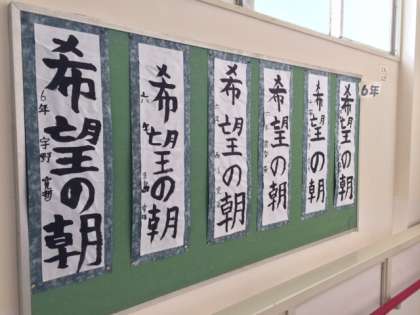 希望の朝
6年 宇野
希望の朝
六年
希望の朝
希望の朝
希望の朝
希望の朝
6年